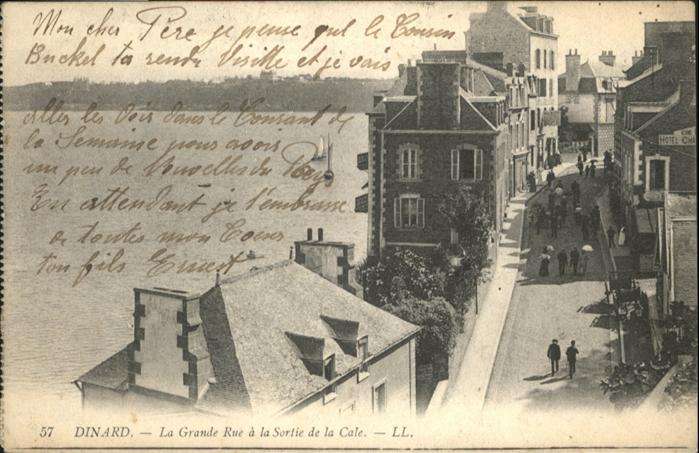 Mon cher Père je pense que le Cousin
Buckel ta rendu Visitte et je vais
aller les Voir dans le Courant de
la Semaine pour avoir
un peu de Nouvelles du Pays
En attendant je t'embrasse
de toutes mon Coeur
ton fils Ernest
HOTEL
57 DINARD. — La Grande Rue à la Sortie de la Cale. — LL.